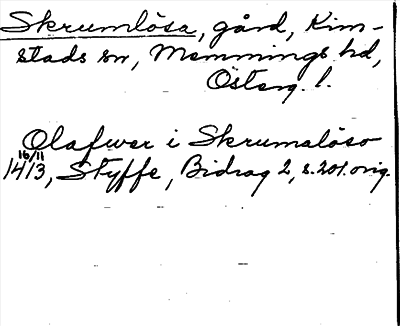 Skrumlösa, gård, Kim-
stads sn, Memmings hd,
Österg. l.
Olafwer i Skrumalöso
16/11
1413, Styffe, Bidrag 2, s. 201. orig.